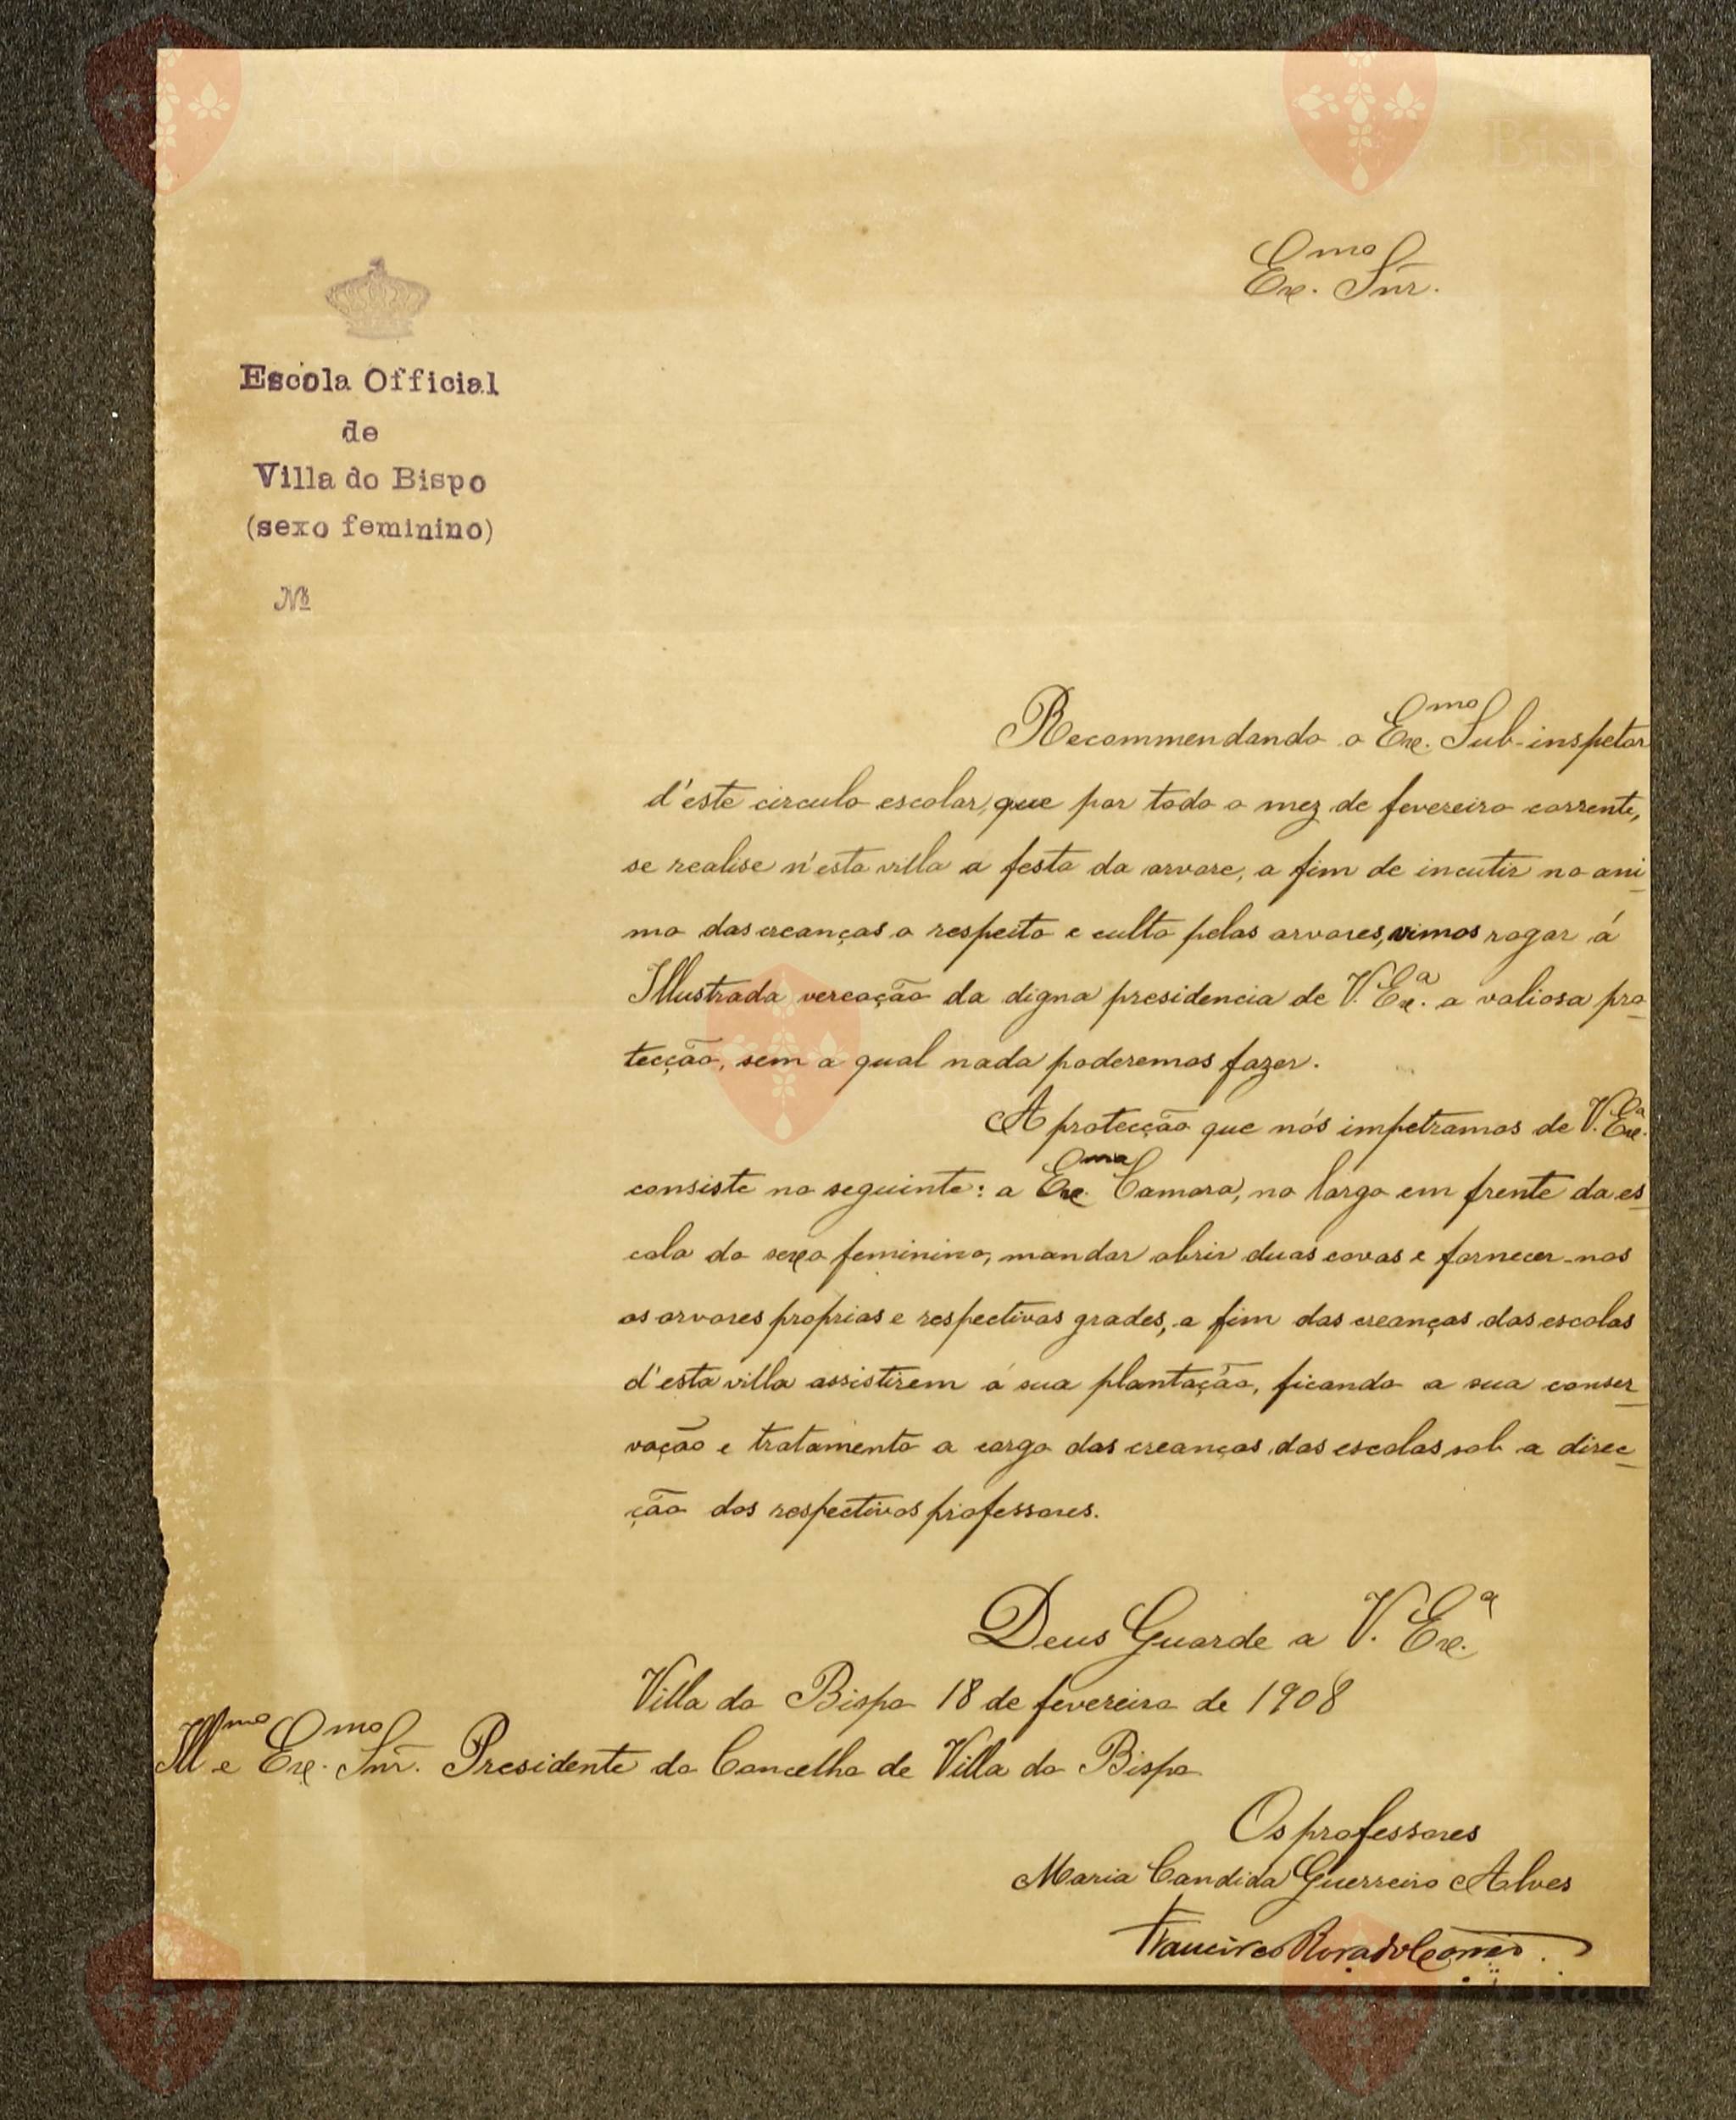 Exmo Snr.
Escola Official
de
Villa do Bispo
(sexo feminino)
Nº
Recommendando o Exmo. Sub-inspetor
d'este circulo escolar, que por todo o mez de fevereiro corrente,
se realise n'esta villa a festa da arvore, a fim de incutir no ani-
mo das creanças o respeito e culto pelas arvores, vimos rogar á
Illustrada vereação da digna presidencia de V. Exª. a valiosa pro-
tecção, sem a qual nada poderemos fazer.
A protecção que nós impetramos de V. Exª.
consiste no seguinte: a Exma. Camara, no largo em frente da es-
cola do sexo feminino, mandar abrir duas covas e fornecer-nos
as arvores proprias e respectivas grades, a fim das creanças das escolas
d'esta villa assistirem á sua plantação, ficando a sua conser-
vação e tratamento a cargo das creanças das escolas sob a direc-
ção dos respectivos professores.
Deus Guarde a V. Exª.
Villa do Bispo 18 de fevereiro de 1908
Illmo e Exmo. Snr. Presidente do Concelho de Villa do Bispo
Os professores
Maria Candida Guerreiro Alves
Francisco
Bispo